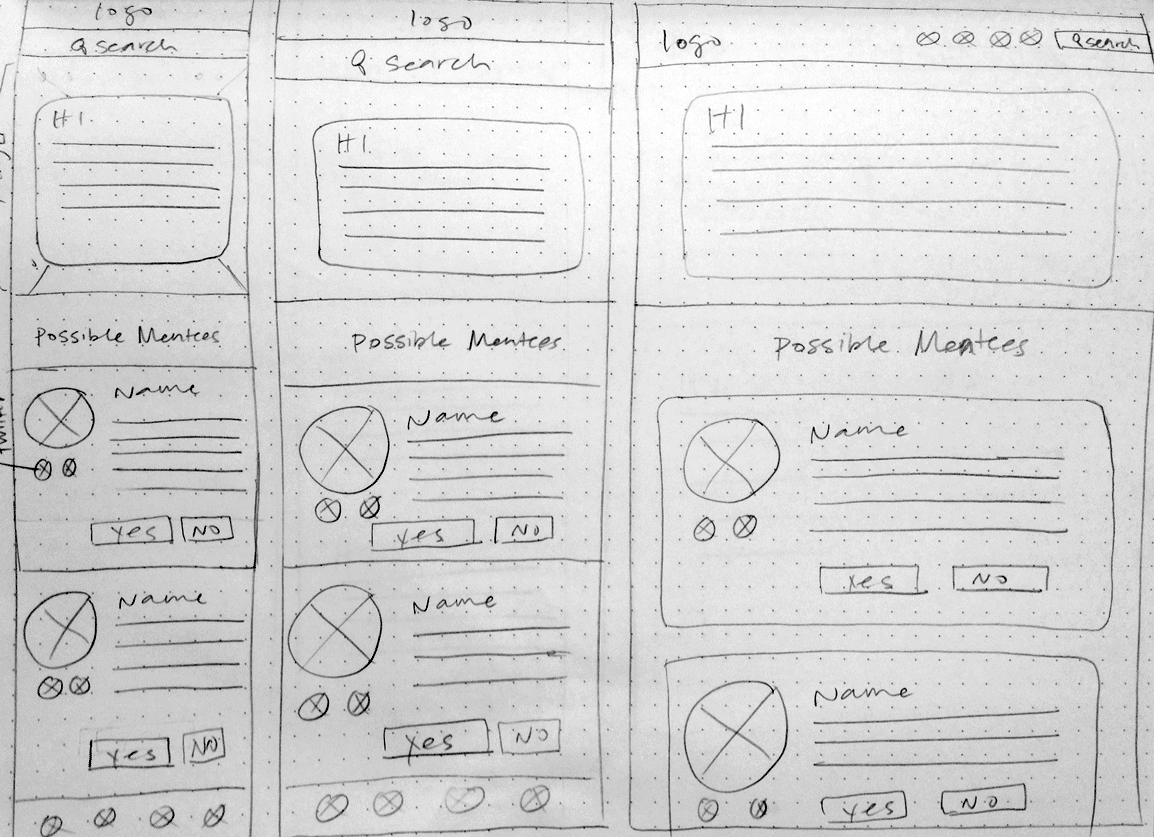 logo
search
H1
Possible Mentees
Name
Yes
NO
Name
Yes
NO
logo
search
H1
Possible Mentees
Name
Yes
NO
Name
Yes
NO
logo
search
H1
Possible Mentees
Name
Yes
NO
Name
Yes
NO